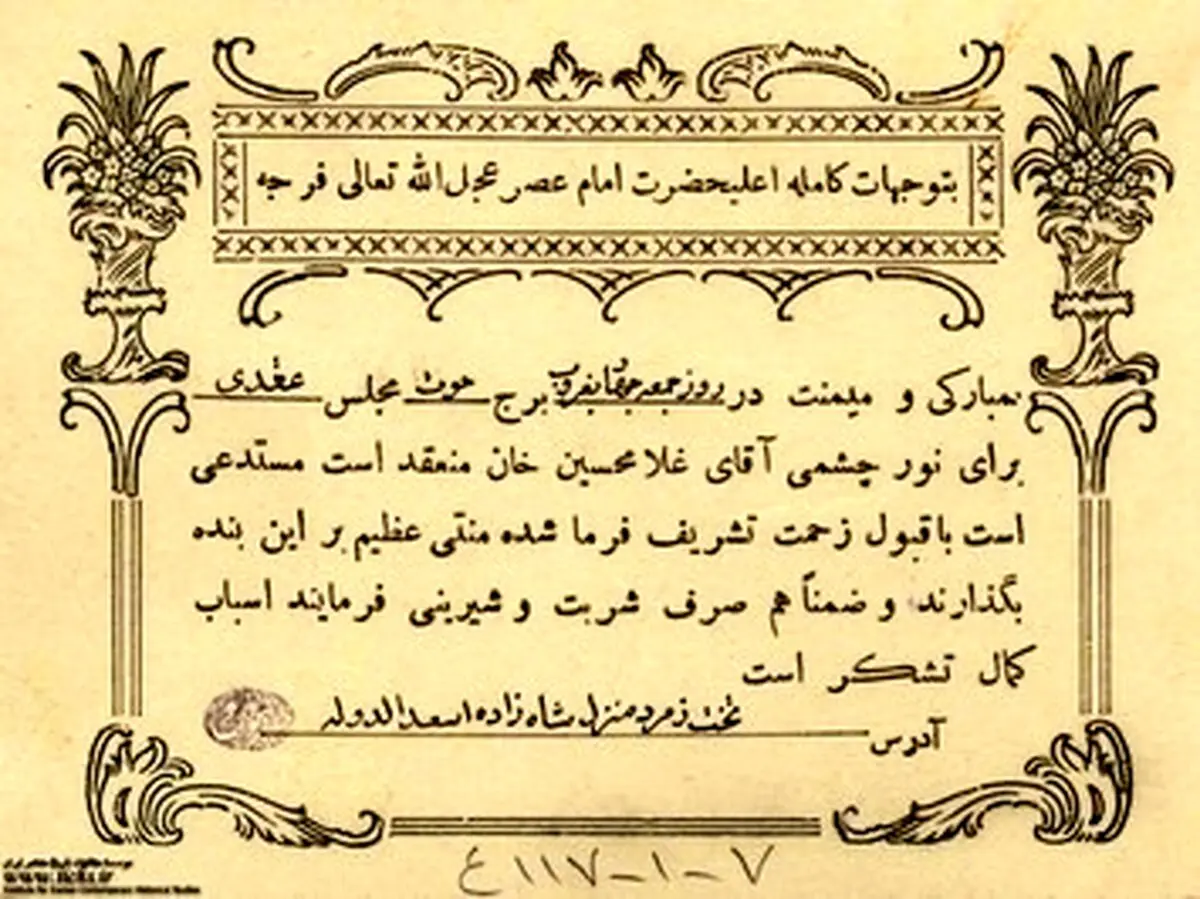 بتوجهات کامله اعلیحضرت امام عصر عجل الله تعالی فرجه
بمبارکی و میمنت در روز جمعه بغروب برج حوت مجلس عقدی
برای نور چشمی آقای غلامحسین خان منعقد است مستدعی
است باقبول زحمت تشریف فرما شده منتی عظیم بر این بنده
بگذارند و ضمناً هم صرف شربت و شیرینی فرمایند اسباب
کمال تشکر است
آدرس تخت زمرد منزل شاه زاده اسعدالدوله
۷-۱-۱۱۷ع